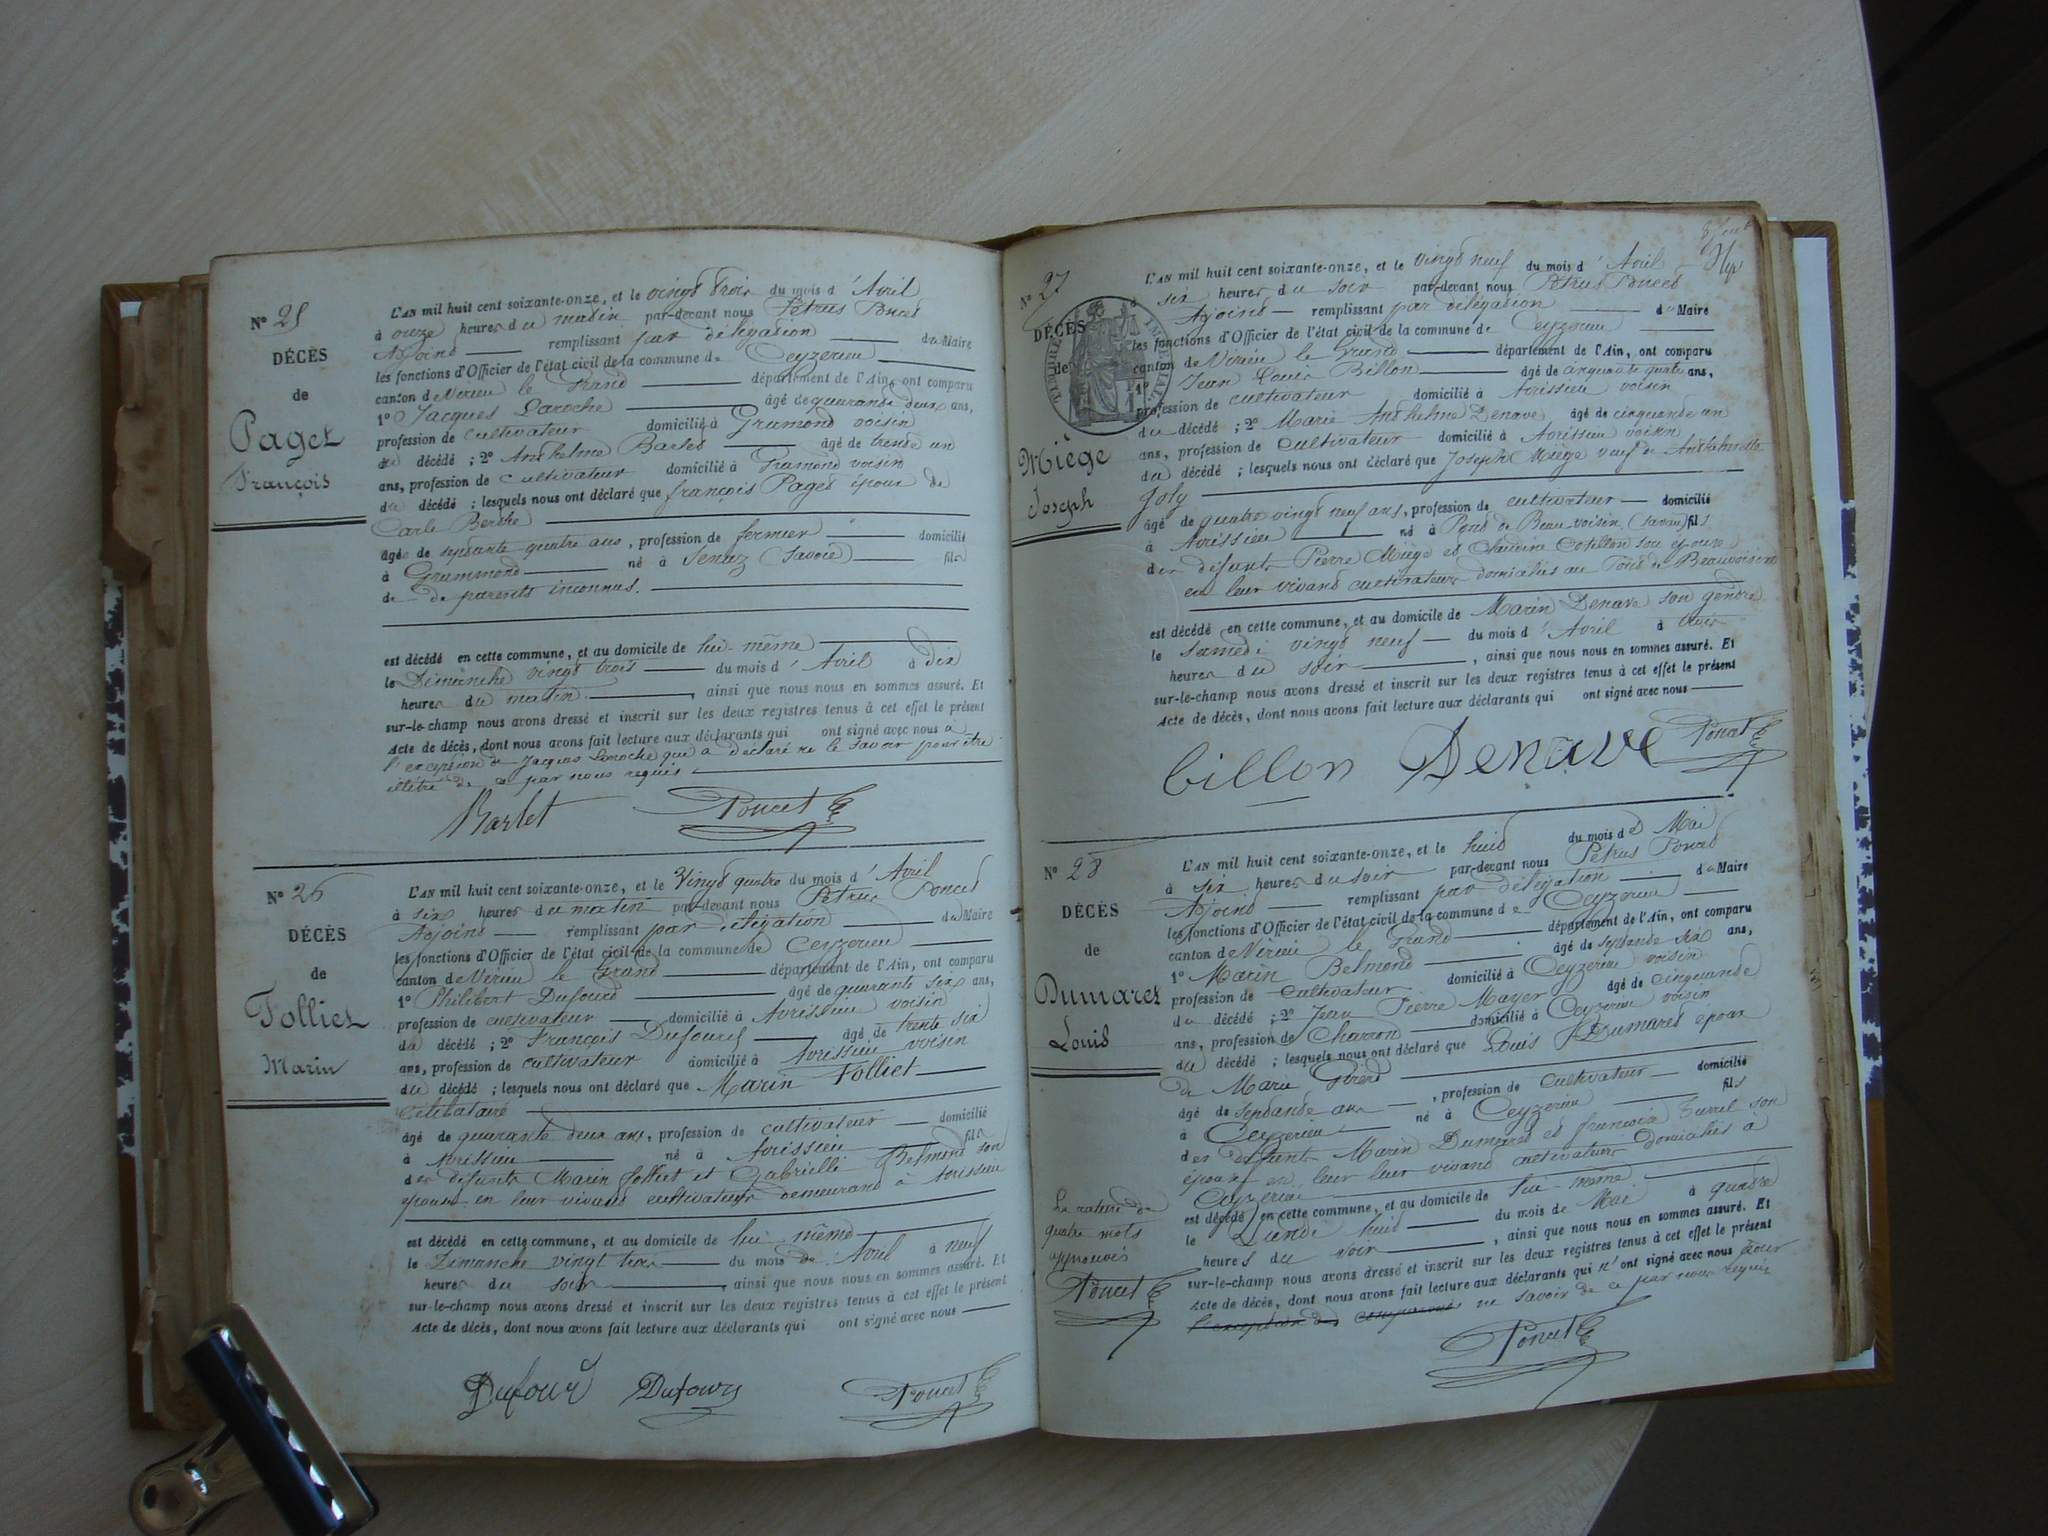 N° 25
DÉCÈS
de
Paget
François
L'AN mil huit cent soixante-onze, et le vingt trois du mois d' Avril
à onze heures du matin par-devant nous Pétrus Poncet
Adjoint remplissant par délégation du Maire
les fonctions d'Officier de l'état civil de la commune de Ceyzerieu
canton de Virieu le Grand département de l'Ain, ont comparu
1° Jacques Laroche âgé de quarante deux ans,
profession de cultivateur domicilié à Gramond voisin
du décédé ; 2° Anthelme Barlet âgé de trente un
ans, profession de cultivateur domicilié à Gramond voisin
du décédé ; lesquels nous ont déclaré que françois Paget époux de
Carle Berthe
âgé de septante quatre ans, profession de fermier domicilié
à Grammond né à Senaz (Savoie) fils
de de parents inconnus.
est décédé en cette commune, et au domicile de lui-même
le Dimanche vingt trois du mois d' Avril à dix
heures du matin, ainsi que nous nous en sommes assuré. Et
sur-le-champ nous avons dressé et inscrit sur les deux registres tenus à cet effet le présent
Acte de décès, dont nous avons fait lecture aux déclarants qui ont signé avec nous à
l'exception de Jacques Laroche qui a déclaré ne le savoir pour être
illétré de ce par nous requis.
Barlet Poncet
N° 26
DÉCÈS
de
Folliet
Marin
L'AN mil huit cent soixante-onze, et le Vingt quatre du mois d' Avril
à six heures du matin par-devant nous Pétrus Poncet
Adjoint remplissant par délégation du Maire
les fonctions d'Officier de l'état civil de la commune de Ceyzerieu
canton de Virieu le Grand département de l'Ain, ont comparu
1° Philibert Dufourd âgé de quarante six ans,
profession de cultivateur domicilié à Avrissieu voisin
du décédé ; 2° François Dufourd âgé de trente six
ans, profession de cultivateur domicilié à Avrissieu voisin
du décédé ; lesquels nous ont déclaré que Marin Folliet
Célibataire
âgé de quarante deux ans, profession de cultivateur domicilié
à Avrissieu né à Avrissieu fils
des défunts Marin folliet et Gabrielle Belmond son
épouse en leur vivant cultivateurs demeurant à Avrissieu
est décédé en cette commune, et au domicile de lui même
le Dimanche vingt trois du mois de Avril à neuf
heures du soir, ainsi que nous nous en sommes assuré. Et
sur-le-champ nous avons dressé et inscrit sur les deux registres tenus à cet effet le présent
Acte de décès, dont nous avons fait lecture aux déclarants qui ont signé avec nous
Dufourd Dufourd Poncet
N° 27
DÉCÈS
de
TIMBRE IMPÉRIAL
Miège
Joseph
L'AN mil huit cent soixante-onze, et le vingt neuf du mois d' Avril
six heures du soir par-devant nous Pétrus Poncet
Adjoint remplissant par délégation du Maire
les fonctions d'Officier de l'état civil de la commune de Ceyzerieu
canton de Virieu le Grand département de l'Ain, ont comparu
1° Jean Louis Billon âgé de cinquante quatre ans,
profession de cultivateur domicilié à Avrissieu voisin
du décédé ; 2° Marie Anthelme Denave âgé de cinquante un
ans, profession de Cultivateur domicilié à Avrissieu voisin
du décédé ; lesquels nous ont déclaré que Joseph Miège veuf de Anthelmette
Joly
âgé de quatre vingt neuf ans, profession de cultivateur domicilié
à Avrissieu né à Pont de Beauvoisin (Savoie) fils
des défunts Pierre Miège et Claudine Cotillon son épouse
en leur vivant cultivateurs domiciliés au Pont de Beauvoisin
est décédé en cette commune, et au domicile de Marin Denave son gendre
le samedi vingt neuf du mois d' Avril à trois
heures du soir, ainsi que nous nous en sommes assuré. Et
sur-le-champ nous avons dressé et inscrit sur les deux registres tenus à cet effet le présent
Acte de décès, dont nous avons fait lecture aux déclarants qui ont signé avec nous
billon Denave Poncet
N° 28
DÉCÈS
de
Dumaret
Louis
L'AN mil huit cent soixante-onze, et le huit du mois de Mai
à six heures du soir par-devant nous Pétrus Poncet
Adjoint remplissant par délégation du Maire
les fonctions d'Officier de l'état civil de la commune de Ceyzerieu
canton de Virieu le Grand département de l'Ain, ont comparu
1° Marin Belmond âgé de septante six ans,
profession de cultivateur domicilié à Ceyzerieu voisin
du décédé ; 2° Jean Pierre Mayer âgé de cinquante
ans, profession de Charron domicilié à Ceyzerieu voisin
du décédé ; lesquels nous ont déclaré que Louis Dumaret époux
de Marie Girerd
âgé de septante ans, profession de cultivateur domicilié
à Ceyzerieu né à Ceyzerieu fils
des défunts Marin Dumaret et françoise Turrel son
épouse en leur leur vivant cultivateurs domiciliés à
Ceyzerieu
est décédé en cette commune, et au domicile de lui-même
le Lundi huit du mois de Mai à quatre
heures du soir, ainsi que nous nous en sommes assuré. Et
sur-le-champ nous avons dressé et inscrit sur les deux registres tenus à cet effet le présent
Acte de décès, dont nous avons fait lecture aux déclarants qui n'ont signé avec nous pour
l'exception des comparants ne savoir de ce par nous requis
Poncet
La rature de
quatre mots
approuvés
Poncet